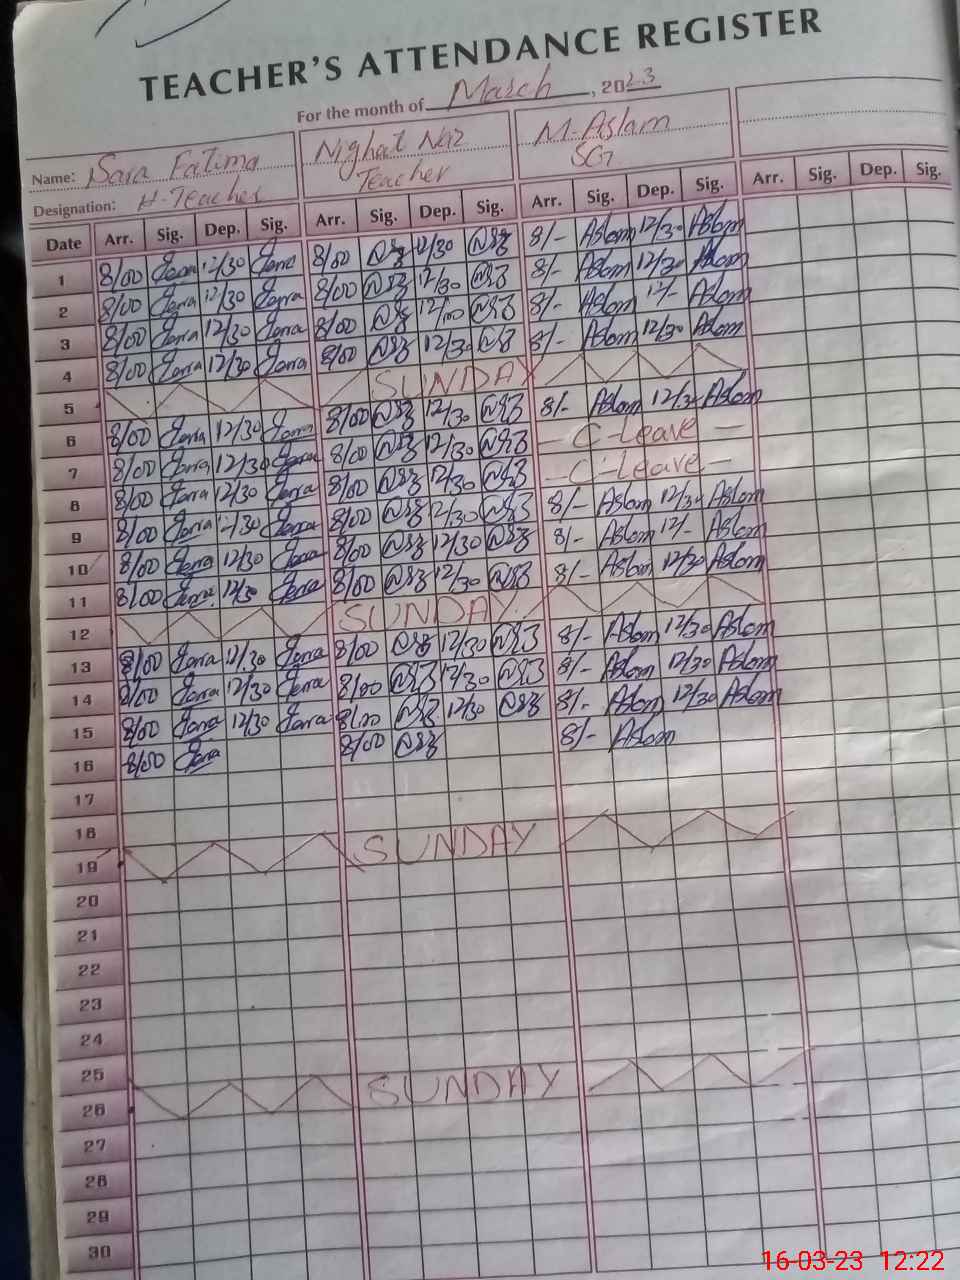 TEACHER'S ATTENDANCE REGISTER
For the month of March, 2023
Name: Sara Fatima Nighat Naz M. Aslam
Designation: H-Teacher Teacher SG
Date Arr. Sig. Dep. Sig. Arr. Sig. Dep. Sig. Arr. Sig. Dep. Sig. Arr. Sig. Dep. Sig.
1 8/00 Sara 12/30 Sara 8/00 12/30 8/- Aslam 12/30 Aslam
2 8/00 Sara 12/30 Sara 8/00 12/30 8/- Aslam 12/30 Aslam
3 8/00 Sara 12/30 Sara 8/00 12/00 8/- Aslam 12/- Aslam
4 8/00 Sara 12/30 Sara 8/00 12/30 8/- Aslam 12/30 Aslam
5 SUNDAY
6 8/00 Sara 12/30 Sara 8/00 12/30 8/- Aslam 12/30 Aslam
7 8/00 Sara 12/30 Sara 8/00 12/30 - C-Leave -
8 8/00 Sara 12/30 Sara 8/00 12/30 - C-Leave -
9 8/00 Sara 12/30 Sara 8/00 12/30 8/- Aslam 12/30 Aslam
10 8/00 Sara 12/30 Sara 8/00 12/30 8/- Aslam 12/- Aslam
11 8/00 Sara 12/30 Sara 8/00 12/30 8/- Aslam 12/30 Aslam
12 SUNDAY
13 8/00 Sara 12/30 Sara 8/00 12/30 8/- Aslam 12/30 Aslam
14 8/00 Sara 12/30 Sara 8/00 12/30 8/- Aslam 12/30 Aslam
15 8/00 Sara 12/30 Sara 8/00 12/30 8/- Aslam 12/30 Aslam
16 8/00 Sara 8/00 8/- Aslam
17
18
19 SUNDAY
20
21
22
23
24
25
26 SUNDAY
27
28
29
30
16-03-23 12:22